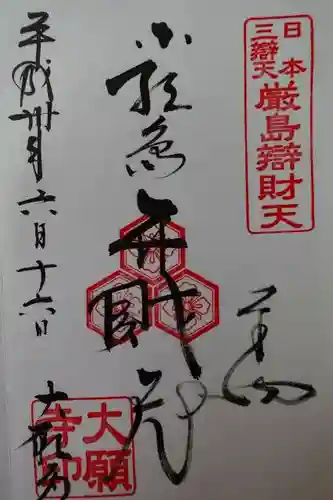 日本三辯天
厳島辯財天
奉拝
厳島弁財天
平成卅年六月十六日
大願寺
大願寺印